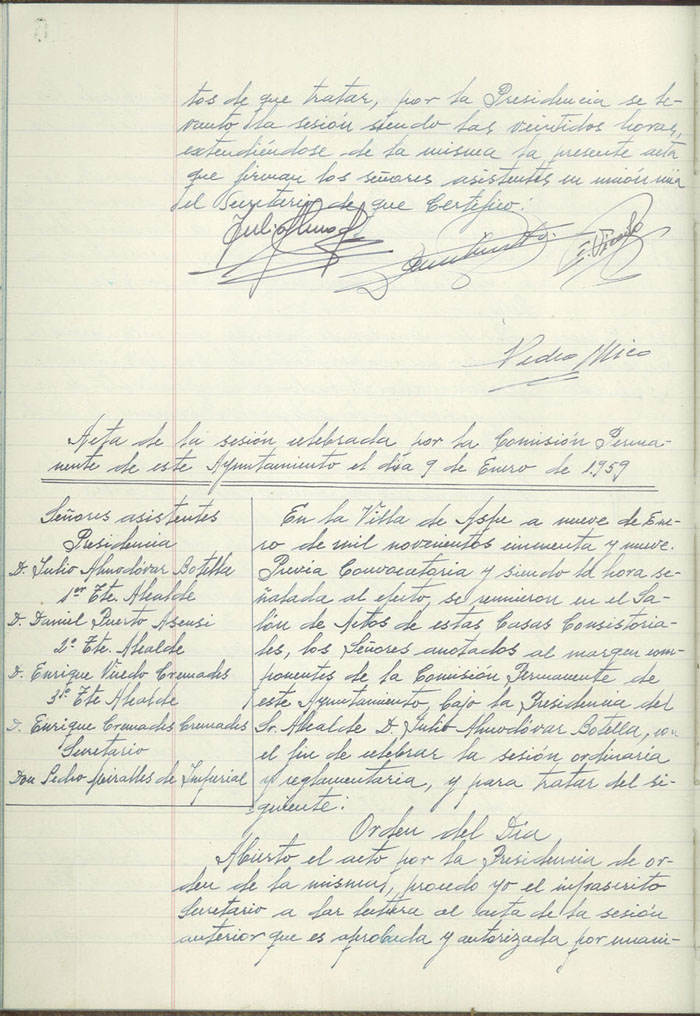 tos de que tratar, por la Presidencia se le-
vanto la sesión siendo las veintidos horas,
extendiéndose de la misma la presente acta
que firman los señores asistentes en unión mia
el Secretario de que Certifico:
Pedro Mira
Acta de la sesión celebrada por la Comisión Perma-
nente de este Ayuntamiento el día 9 de Enero de 1.959
Señores asistentes
Presidencia
D. Julio Almodóvar Botella
1er Tte. Alcalde
D. Daniel Puerto Asensi
2º Tte. Alcalde
D. Enrique Vicedo Cremades
3º Tte Alcalde
D. Enrique Cremades Cremades
Secretario
Don Pedro Miralles de Imperial
En la Villa de Aspe a nueve de Ene-
ro de mil novecientos cincuenta y nueve.
Previa Convocatoria y siendo la hora se-
ñalada al efecto se reunieron en el Sa-
lón de Actos de estas Casas Consistoria-
les, los Señores anotados al margen com-
ponentes de la Comisión Permanente de
este Ayuntamiento, bajo la Presidencia del
Sr. Alcalde D. Julio Almodóvar Botella, con
el fin de celebrar la sesión ordinaria
y reglamentaria, y para tratar del si-
guiente:
Orden del Día
Abierto el acto por la Presidencia de or-
den de la misma, procedo yo el infrascrito
Secretario a dar lectura al acta de la sesión
anterior que es aprobada y autorizada por unani-